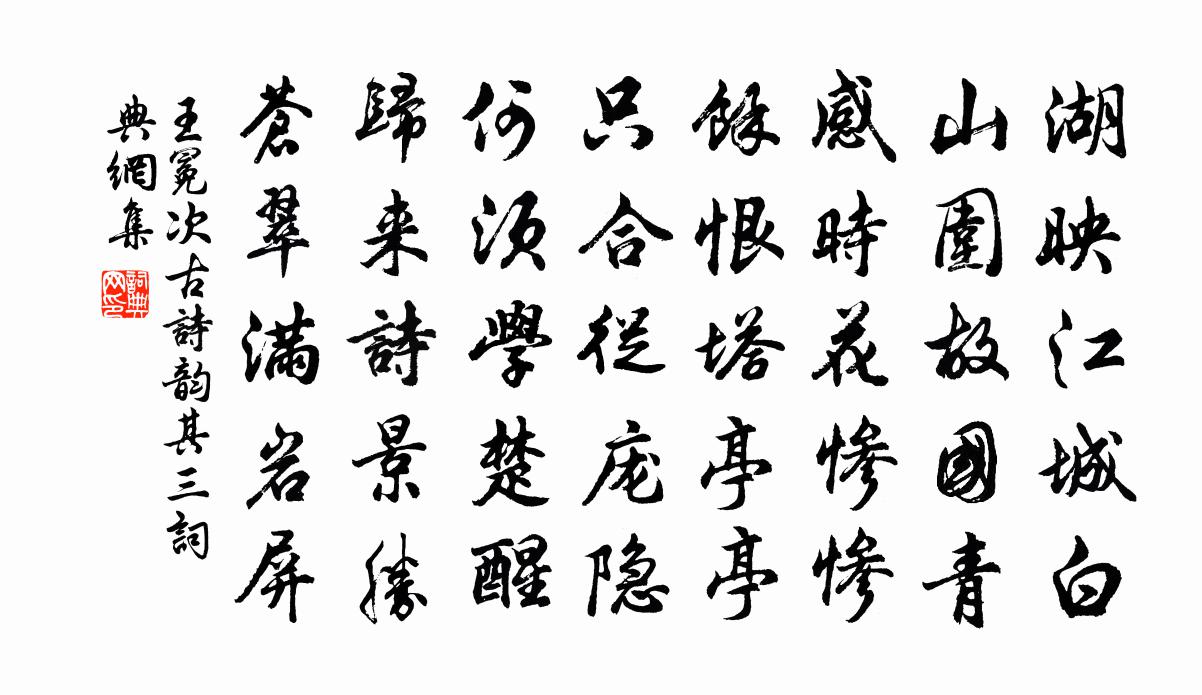 湖映江城白
山圍故國青
感時花慘慘
餘恨塔亭亭
只合從庞隐
何須學楚醒
歸来詩景勝
蒼翠满岩屏
王冕次古詩韵其三詞
典網集
詞典
网印